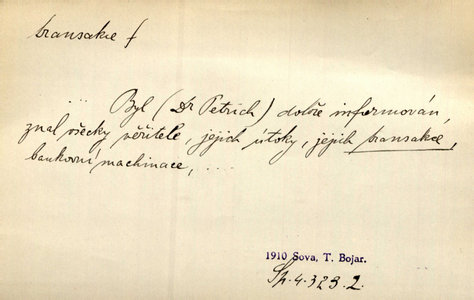 transakce f
... Byl (Dr Petrich) dobře informován,
znal všecky věřitele, jejich útoky, jejich transakce,
bankovní machinace, ....
1910 Sova, T. Bojar.
Sp. 4. 323. 2.